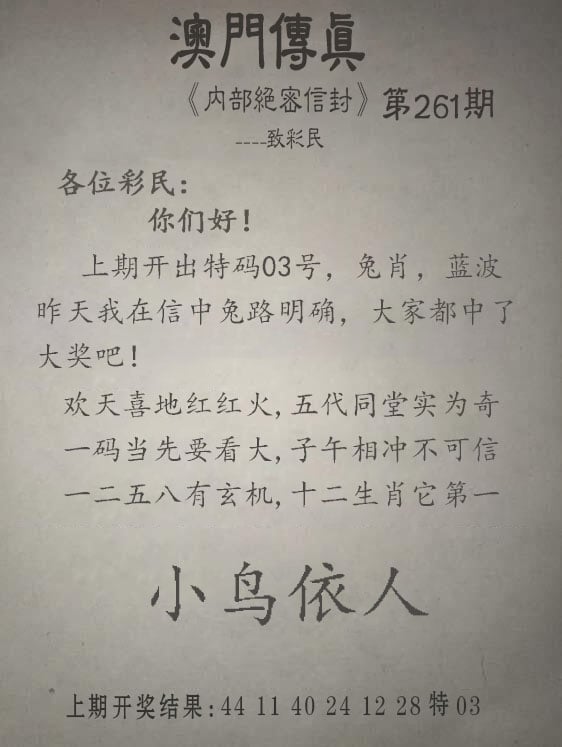 澳門傳真
《内部絕密信封》第261期
----致彩民
各位彩民:
你们好!
上期开出特码03号，兔肖，蓝波
昨天我在信中兔路明确，大家都中了
大奖吧!
欢天喜地红红火,五代同堂实为奇
一码当先要看大,子午相冲不可信
一二五八有玄机,十二生肖它第一
小鸟依人
上期开奖结果:44 11 40 24 12 28 特 03